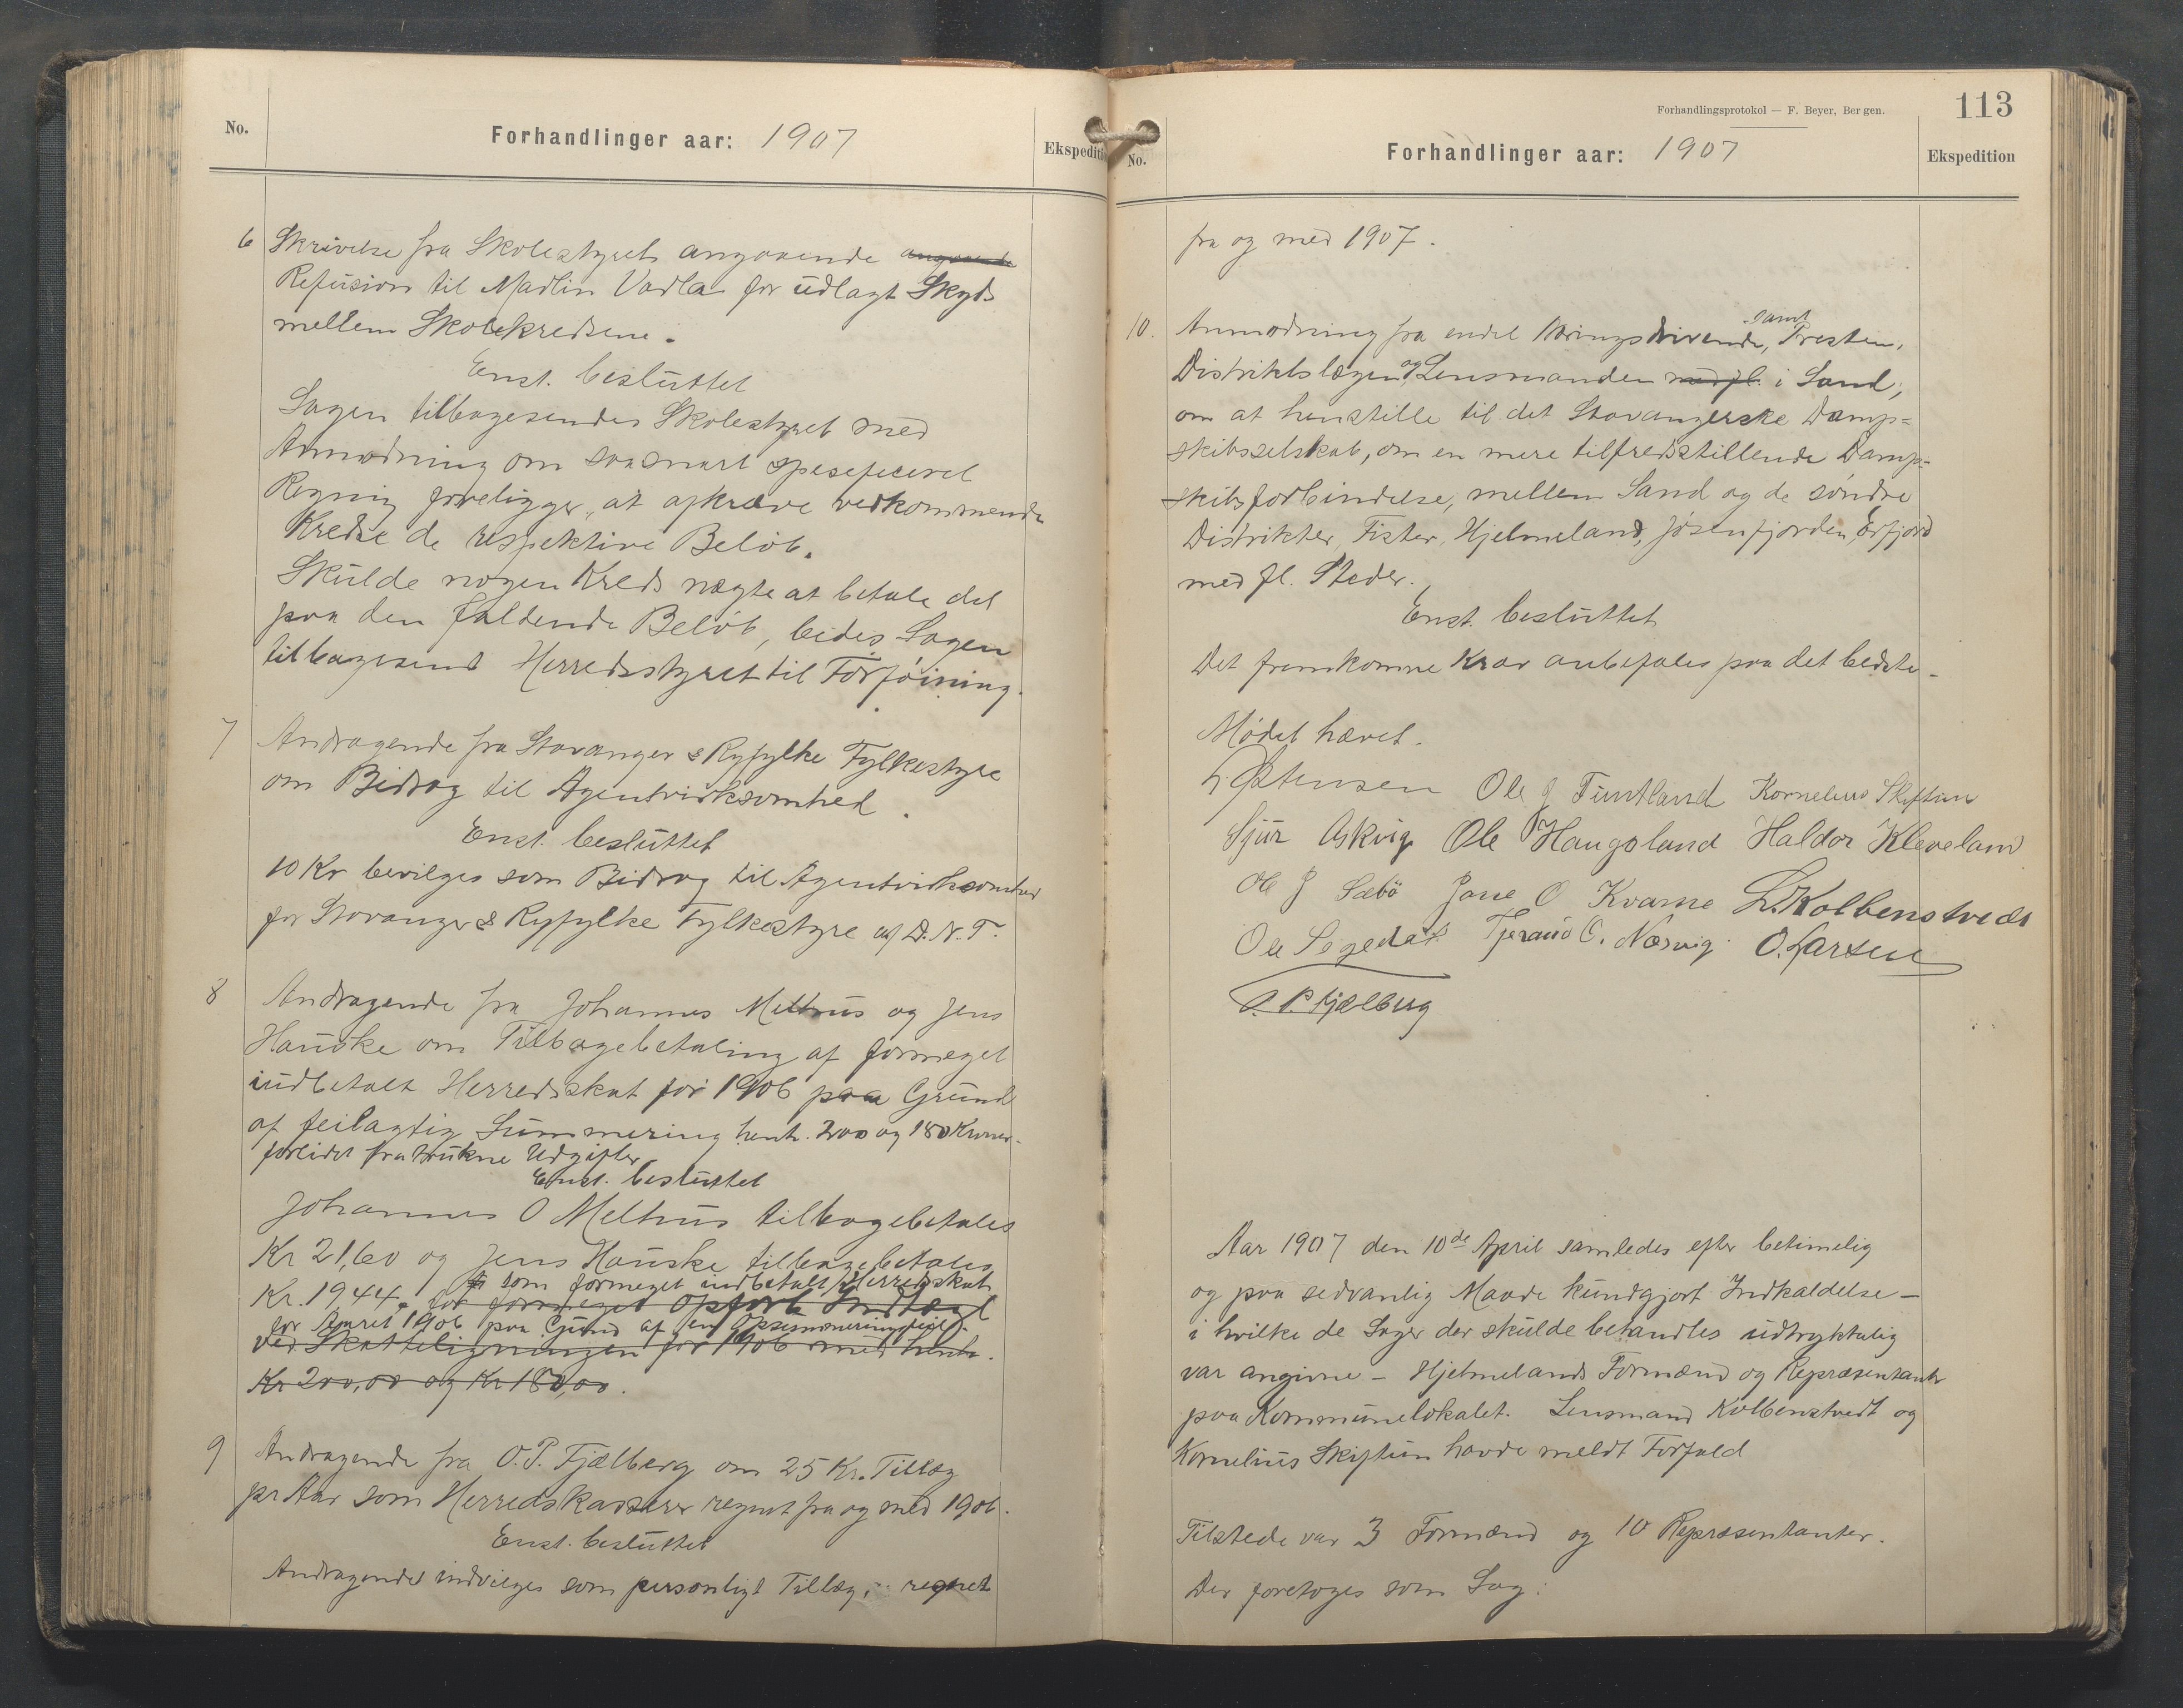 No.
Forhandlinger aar: 1907
Ekspediti
6 Skrivelse fra Skolestyret angaaende angaaende
Refusion til Madlin Vadla for udlagt Skyds
mellem Skolekredsene.
Enst. besluttet
Sagen tilbagesendes Skolestyret med
Anmodning om saasnart speseficeret
Regning foreligger, at afkræve vedkommende
Kredse de respektive Beløb.
Skulde nogen Kreds nægte at betale det
paa den faldende Beløb, bedes Sagen
tilbagesendt Herredsstyret til Forføining.
7 Andragende fra Stavanger & Ryfylke Fylkestyre
om Bidrag til Agentvirksomhed.
Enst. besluttet
10 Kr bevilges som Bidrag til Agentvirksomhed
for Stavanger & Ryfylke Fylkestyre af D.N.T.
8 Andragende fra Johannes Meltrus og Jens
Hauske om Tilbagebetaling af formeget
indbetalt Herredsskat for 1906 paa Grund
af feilagtig Summering henh. 200 og 180 Kroner
forlidet fratrukne Udgifter
Enst. besluttet
Johannes O Meltrus tilbagebetales
Kr 21,60 og Jens Hauske tilbagebetales
som formeget indbetalt Herredsskat
Kr. 19 44. for formeget opført Indtægt
for Aaret 1906 paa Grund af en Opsummeringsfeil.
ved Skatteligningen for 1906 med henh.
Kr 200,00 og Kr 180,00.
9 Andragende fra O.P. Fjælberg om 25 Kr. Tillæg
pr Aar som Herredskasserer regnet fra og med 1906.
Enst. besluttet
Andragendet indvilges som personligt Tillæg, regnet
Forhandlingsprotokol — F. Beyer, Bergen.
113
No.
Forhandlinger aar: 1907
Ekspedition
fra og med 1907.
samt
10. Anmodning fra endel Næringsdrivende, Presten,
Distriktslægen og Lensmanden med fl. i Sand,
om at henstille til det Stavangerske Damp=
skibsselskab, om en mere tilfredsstillende Damp=
skibsforbindelse, mellem Sand og de søndre
Distrikter, Fister, Hjelmeland, Jøsenfjorden, Erfjord
med fl. Steder.
Enst. besluttet
Det fremkomne Krav anbefales paa det bedste.
Mødet hævet.
Ole J Funtland Kornelius Skiftun
Sjur Askvig Ole Haugsland Haldor Kleveland
Ole J Sæbø Jone O Kvame L. Kolbenstvedt
Ole Segedal Tjerand O. Næsvig. O. Larsen
O. P. Fjælberg
Aar 1907 den 10de April samledes efter betimelig
og paa sedvanlig Maade kundgjort Indkaldelse —
i hvilke de Sager der skulde behandles udtrykkelig
var angivne — Hjelmelands Formænd og Repræsentanter
paa Kommunelokalet. Lensmand Kolbenstvedt og
Kornelius Skiftun havde meldt Forfald
Tilstede var 3 Formænd og 10 Repræsentanter.
Der foretoges som Sag: